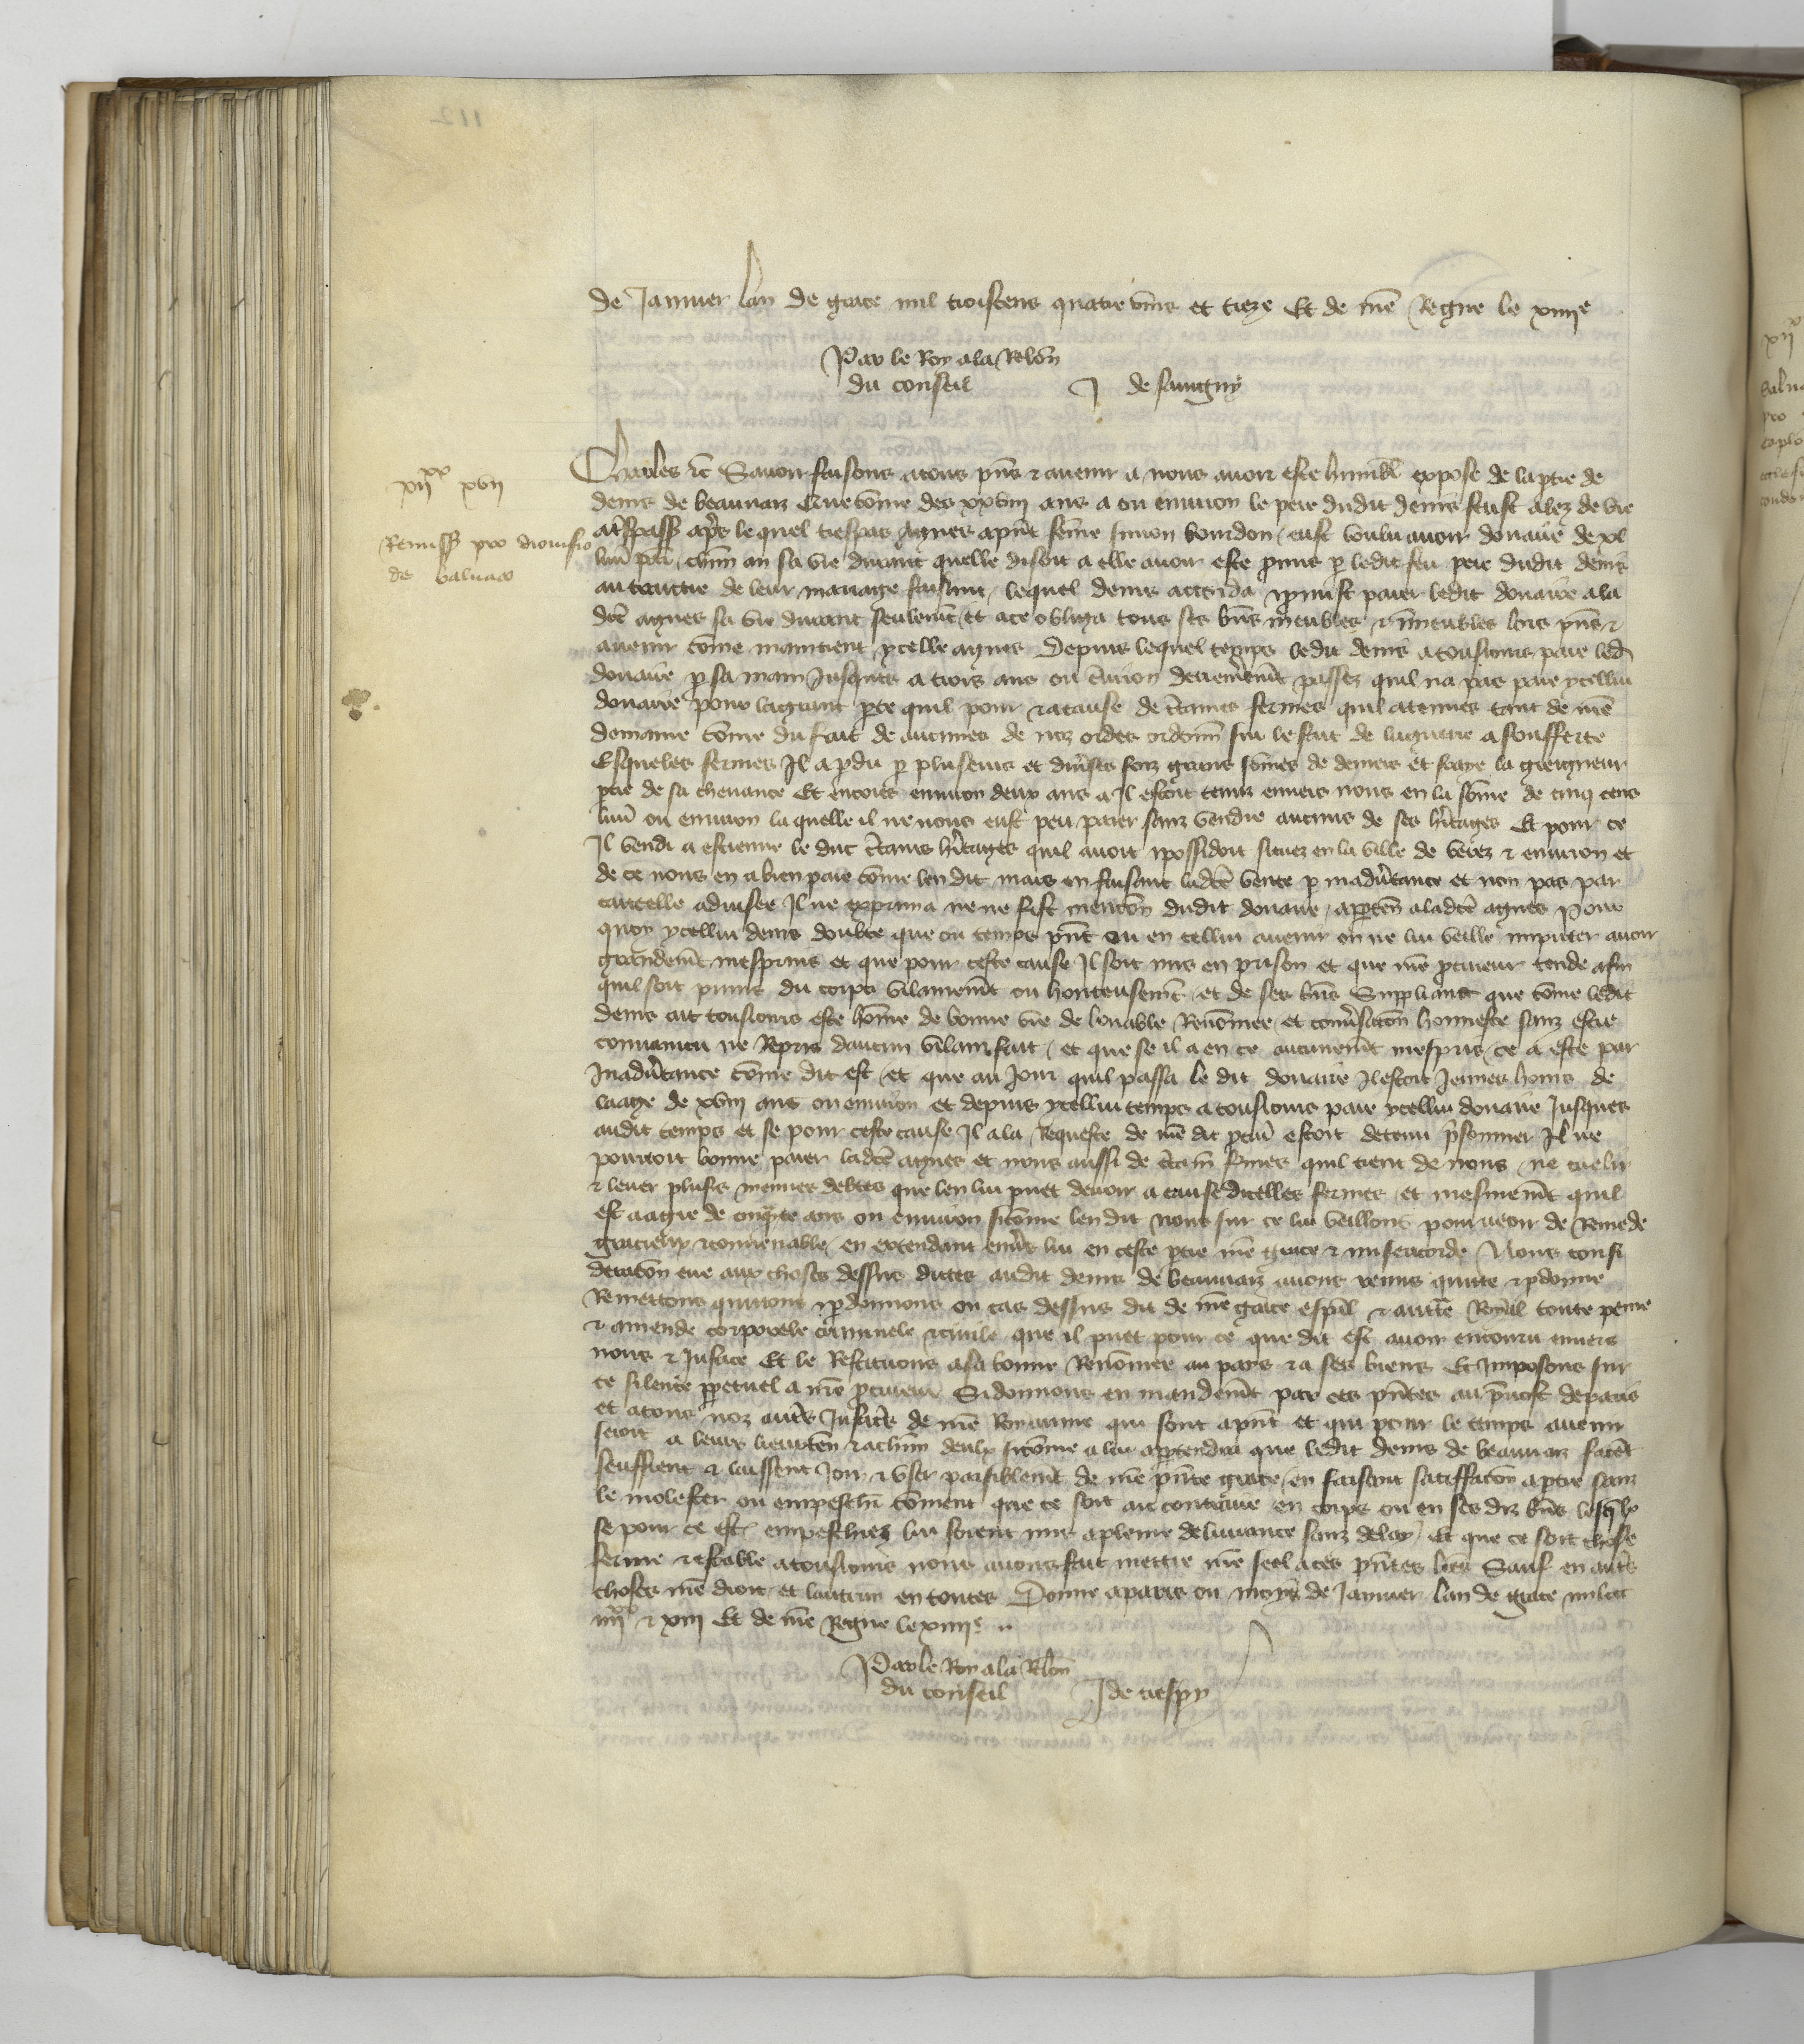 112
de Januier lan de grace mil troiscens quatre vins et treze Et de nre Regne le xiiiie
Par le Roy a la Relon
du conseil J de sauigny
xiixx xvii
Remiss pro dionisio
de baluaco
Charles etc Sauoir faisons a tous pns & auenir a nous auoir este humblt expose de la ptie de
denis de beauuaiz Que come des xxviii ans a ou enuiron le pere dudit denis feust alez de vie
a trespass apres lequel trespas Agnes apnt feme simon bourdon eust voulu auoir douaire de xl
liur par chun an sa vie durant quelle disoit a elle auoir este pmis p ledit feu pere dudit denis
au traictie de leur mariage faisant lequel denis accorda & pmist paier ledit douaire a la
dce agnes sa vie durant seulemt et a ce obliga tous ses bns meubles & imeubles lors pns &
auenir come maintient ycelle agnes Depuis lequel temps ledit denis a tousiours paie led
douaire p sa main Jusques a trois ans ou enuiron derrenieremt passez quil na pas paie ycellui
douaire pour la grant pte quil pour & a cause de ctaines fermes quil a tenues tant de nre
demaine come du fait de aucunes de noz aides ordenn sur le fait de la guerre a soufferte
Esqueles fermes Il a pdu p pluseurs et diuses foiz grans somes de deniers et fraye la greigneur
ptie de sa cheuance Et encores enuiron deux ans a Il estoit tenuz enuers nous en la some de cinq cens
liur ou enuiron la quelle il ne nous eust peu paier sanz vendre aucuns de ses hitages Et pour ce
Il vendi a estienne le duc ctains hitages quil auoit & possidoit situez en la ville de verez & enuiron et
de ce nous en a bien paie come len dit mais en faisant ladce vente p inaduertance et non pas par
cautelle aduisee Il ne exprima ne ne fist mencon dudit douaire apparten a ladce agnes Pour
quoy ycellui denis doubte que ou temps pnt ou en cellui auenir on ne lui veille imputer auoir
grandemt mesprins et que pour ceste cause Il soit mis en prison et que nre pcureur tende afin
quil soit puniz du corps vilainemt ou honteusemt et de ses bns Suppliant que come ledit
denis ait tousiours este home de bonne vie de louable Renomee et conuersacon honneste sanz estre
conuaincu ne Repris daucun vilain fait et que se il a en ce aucunemt mespris ce a este par
Inaduertance come dit est et que au Jour quil passa le dit douaire Il estoit Jeunes homs de
laage de xviii ans ou enuiron et depuis ycellui temps a tousiours paie ycellui douaire Jusques
audit temps et se pour ceste cause Il a la Requeste de nre dit pcur estoit detenu prisonnier Il ne
pourroit bonne paier ladce agnes et nous aussi de ctain fermes quil tient de nous ne cuelir
& leuer plusrs menues debtes que len lui puet deuoir a cause dicelles fermes et mesmemt quil
est aagie de cinqte ans ou enuiron sicome len dit nous sur ce lui veillons pourueoir de Remede
gracieux & conuenable en extendant enuers lui en ceste ptie nre grace & misericorde Nous consi
deracon eue aux choses dessus dittes audit denis de beauuaiz auons remis quitte & pdonne
Remettons quittons & pdonnons ou cas dessus dit de nre grace espal & auttre Royal toute peine
& amende corporele criminele & ciuile que il puet pour ce que dit est auoir encouru enuers
nous & Justice Et le Restituons a sa bonne Renomee au pays & a ses biens Et Imposons sur
ce silence ppetuel a nre pcureur Si donnons en mandemt par ces pntes au preuost de paris
et a tous noz autres Justiciers de nre Royaume qui sont apnt et qui pour le temps auenir
seront a leurs lieuxten & a chun deulx sicome a lui appartendra que ledit denis de beauuaiz facent
seuffrent & laissent Joir & vser paisiblemt de nre pnte grace en faisant satisfacon a ptie sanz
le molester ou empeschr coment que ce soit au contraire en corps ou en ses diz bns lesqlx
se pour ce estr empeschiez lui soient mis a pleine deliurance sanz delay Et que ce soit chose
ferme & estable a tousiours nous auons fait mettre nre seel a ces pntes lres Sauf en autrs
choses nre droit et lautrui en toutes Donne a paris ou moys de Januier lan de grace mil ccc
iiiixx & xiii Et de nre Regne le xiiiie
Par le Roy a la Relon
du conseil J de crespy